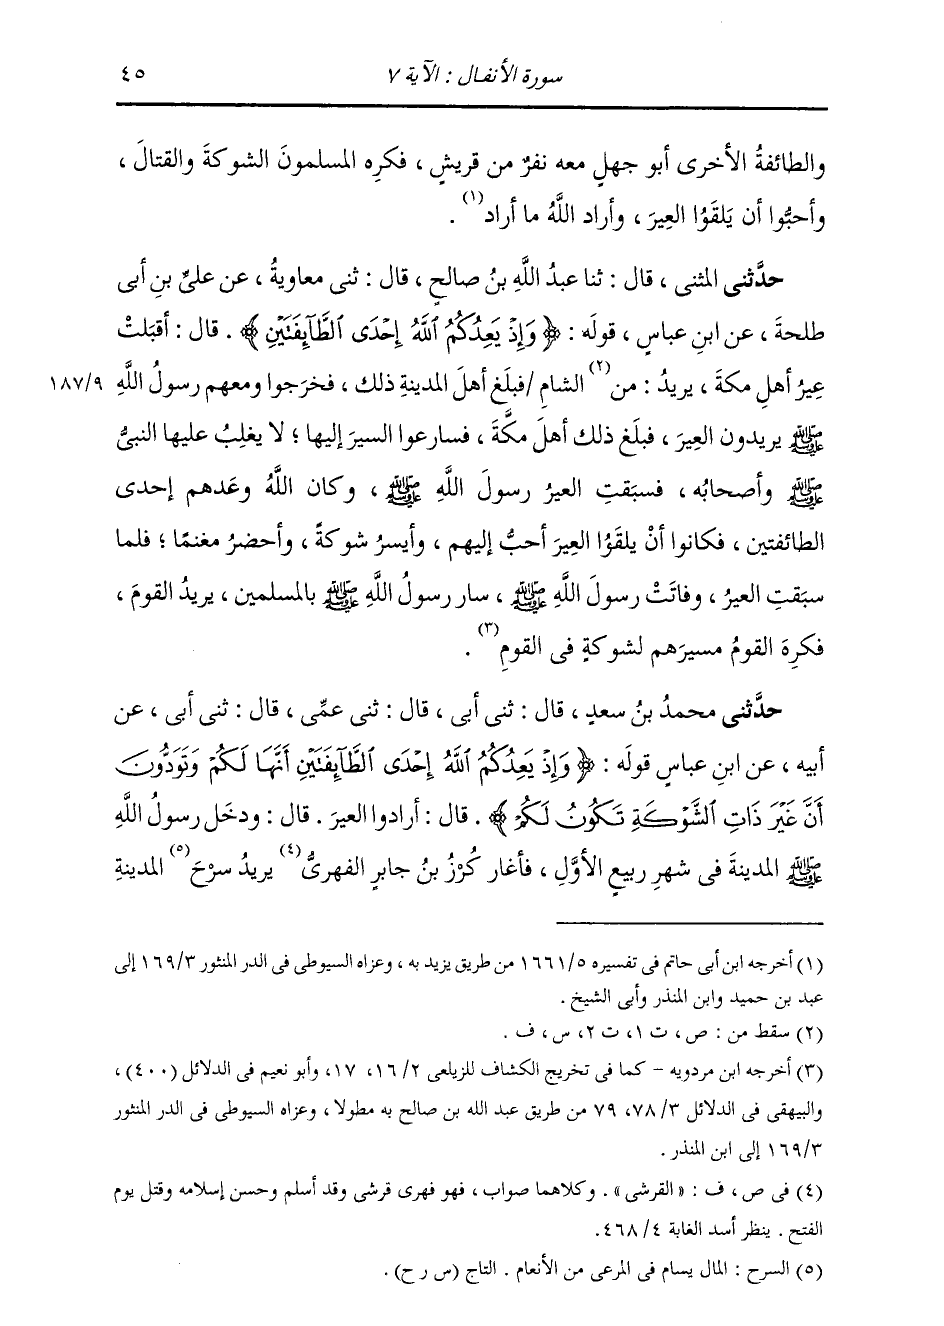 سورة الأنفال : الآية ٧ ٤٥
والطائفةُ الأخرى أبو جهلٍ معه نفرٌ من قريشٍ ، فكرِه المسلمونَ الشوكةَ والقتالَ ،
وأحبُّوا أن يَلقَوُا العِيرَ ، وأراد اللَّهُ ما أراد(١) .
حدَّثنى المثنى ، قال : ثنا عبدُ اللَّهِ بنُ صالحٍ ، قال : ثنى معاويةُ ، عن علىِّ بنِ أبى
طلحةَ ، عن ابنِ عباسٍ ، قولَه : ﴿ وَإِذْ يَعِدُكُمُ ٱللَّهُ إِحْدَى ٱلطَّآئِفَتَيْنِ ﴾ . قال : أقبَلتْ
عِيرُ أهلِ مكةَ ، يريدُ : من(٢) الشامِ /فبلَغ أهلَ المدينةِ ذلك ، فخرَجوا ومعهم رسولُ اللَّهِ ١٨٧/٩
ﷺ يريدون العِيرَ ، فبلَغ ذلك أهلَ مكَّةَ ، فسارعوا السيرَ إليها ؛ لا يغلِبُ عليها النبىُّ
ﷺ وأصحابُه ، فسبَقتِ العيرُ رسولَ اللَّهِ ﷺ ، وكان اللَّهُ وعَدهم إحدى
الطائفتين ، فكانوا أنْ يلقَوُا العِيرَ أحبُّ إليهم ، وأيسرُ شوكةً ، وأحضرُ مغنمًا ؛ فلما
سبَقتِ العيرُ ، وفاتَتْ رسولَ اللَّهِ ﷺ ، سار رسولُ اللَّهِ ﷺ بالمسلمين ، يريدُ القومَ ،
فكرِهَ القومُ مسيرَهم لشوكةٍ فى القومِ(٣) .
حدَّثنى محمدُ بنُ سعدٍ ، قال : ثنى أبى ، قال : ثنى عمِّى ، قال : ثنى أبى ، عن
أبيه ، عن ابنِ عباسٍ قولَه : ﴿ وَإِذْ يَعِدُكُمُ ٱللَّهُ إِحْدَى ٱلطَّآئِفَتَيْنِ أَنَّهَا لَكُمْ وَتَوَدُّونَ
أَنَّ غَيْرَ ذَاتِ ٱلشَّوْكَةِ تَكُونُ لَكُمْ ﴾ . قال : أرادوا العيرَ . قال : ودخَل رسولُ اللَّهِ
ﷺ المدينةَ فى شهرِ ربيعٍ الأوَّلِ ، فأغار كُرْزُ بنُ جابرٍ الفهرىُّ(٤) يريدُ سرْحَ(٥) المدينةِ
(١) أخرجه ابن أبى حاتم فى تفسيره ١٦٦١/٥ من طريق يزيد به ، وعزاه السيوطى فى الدر المنثور ١٦٩/٣ إلى
عبد بن حميد وابن المنذر وأبى الشيخ .
(٢) سقط من : ص ، ت ١، ت ٢، س ، ف .
(٣) أخرجه ابن مردويه - كما فى تخريج الكشاف للزيلعى ١٦/٢، ١٧، وأبو نعيم فى الدلائل (٤٠٠) ،
والبيهقى فى الدلائل ٧٨/٣، ٧٩ من طريق عبد الله بن صالح به مطولا ، وعزاه السيوطى فى الدر المنثور
١٦٩/٣ إلى ابن المنذر .
(٤) فى ص ، ف : « القرشى » . وكلاهما صواب ، فهو فهرى قرشى وقد أسلم وحسن إسلامه وقتل يوم
الفتح . ينظر أسد الغابة ٤٦٨/٤.
(٥) السرح : المال يسام فى المرعى من الأنعام . التاج (س ر ح) .